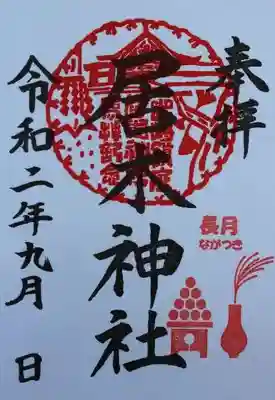 奉拝
居木神社
長月
ながつき
令和二年九月　日